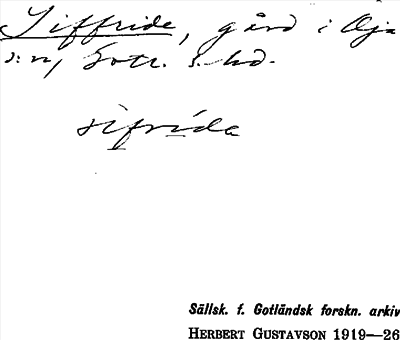 Siffride, gård i Öja
s:n, Gotl. s. hd.
sifrida
Sällsk. f. Gotländsk forskn. arkiv
HERBERT GUSTAVSON 1919—26